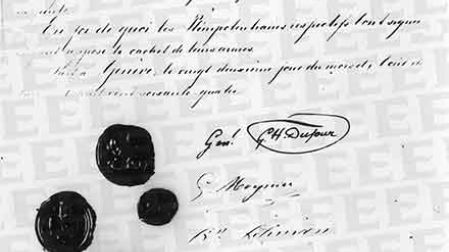 En foi de quoi les Plénipotentiaires respectifs l'ont signée
apposé le cachet de leurs armes.
Fait à Genève, le vingt deuxième jour du mois d'Août
cent soixante quatre
Genl. G H Dufour
G Moynier